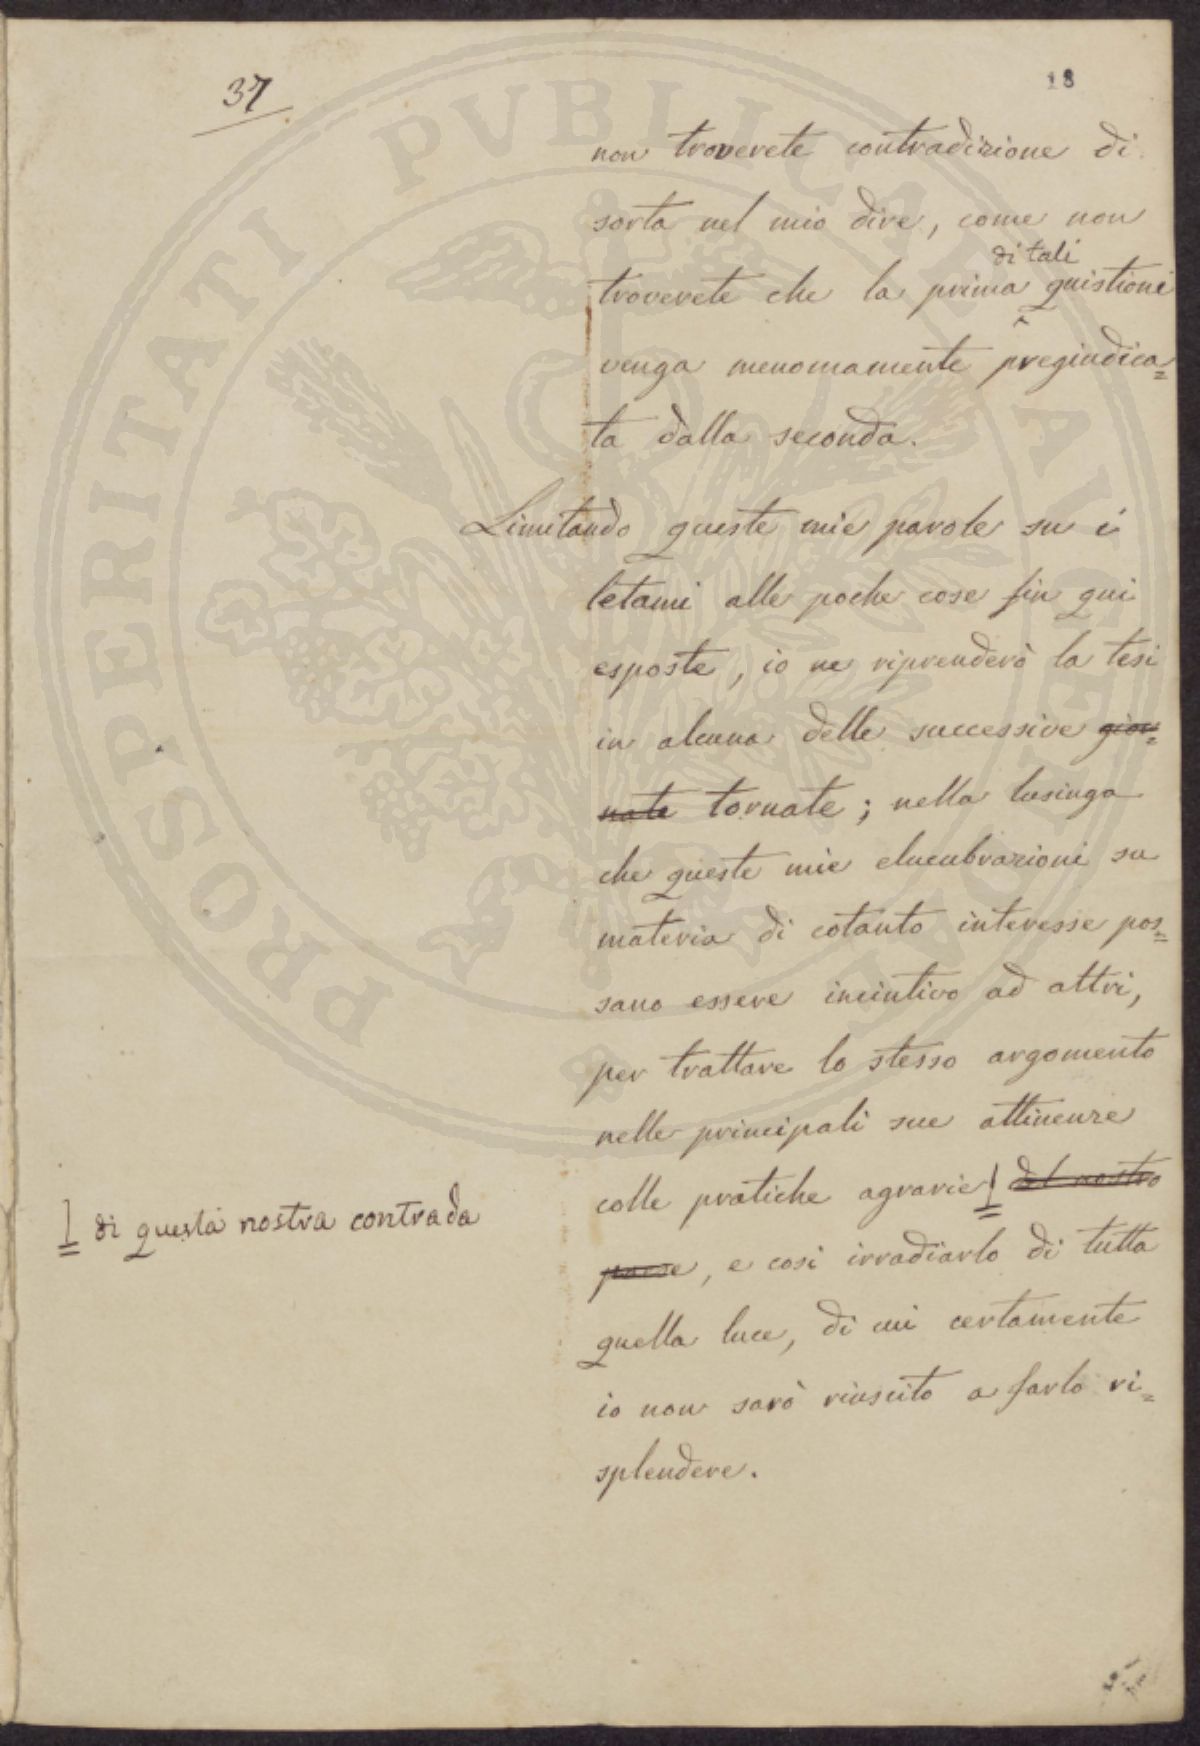 37
18
non troverete contradizione di
sorta nel mio dire, come non
di tali
troverete che la prima ^ quistioni
venga menomamente pregiudica=
ta dalla seconda.
Limitando queste mie parole su i
letami alle poche cose fin qui
esposte, io ne riprenderò la tesi
in alcuna delle successive gior=
nate tornate; nella lusinga
che queste mie elucubrazioni su
materia di cotanto interesse pos=
sano essere incintivo ad altri,
per trattare lo stesso argomento
nelle principali sue attinenze
colle pratiche agrarie del nostro
di questa nostra contrada
paese, e così irradiarlo di tutta
quella luce, di cui certamente
io non sarò riuscito a farlo ri=
splendere.
PROSPERITATI PVBLICAE AVGENDAE